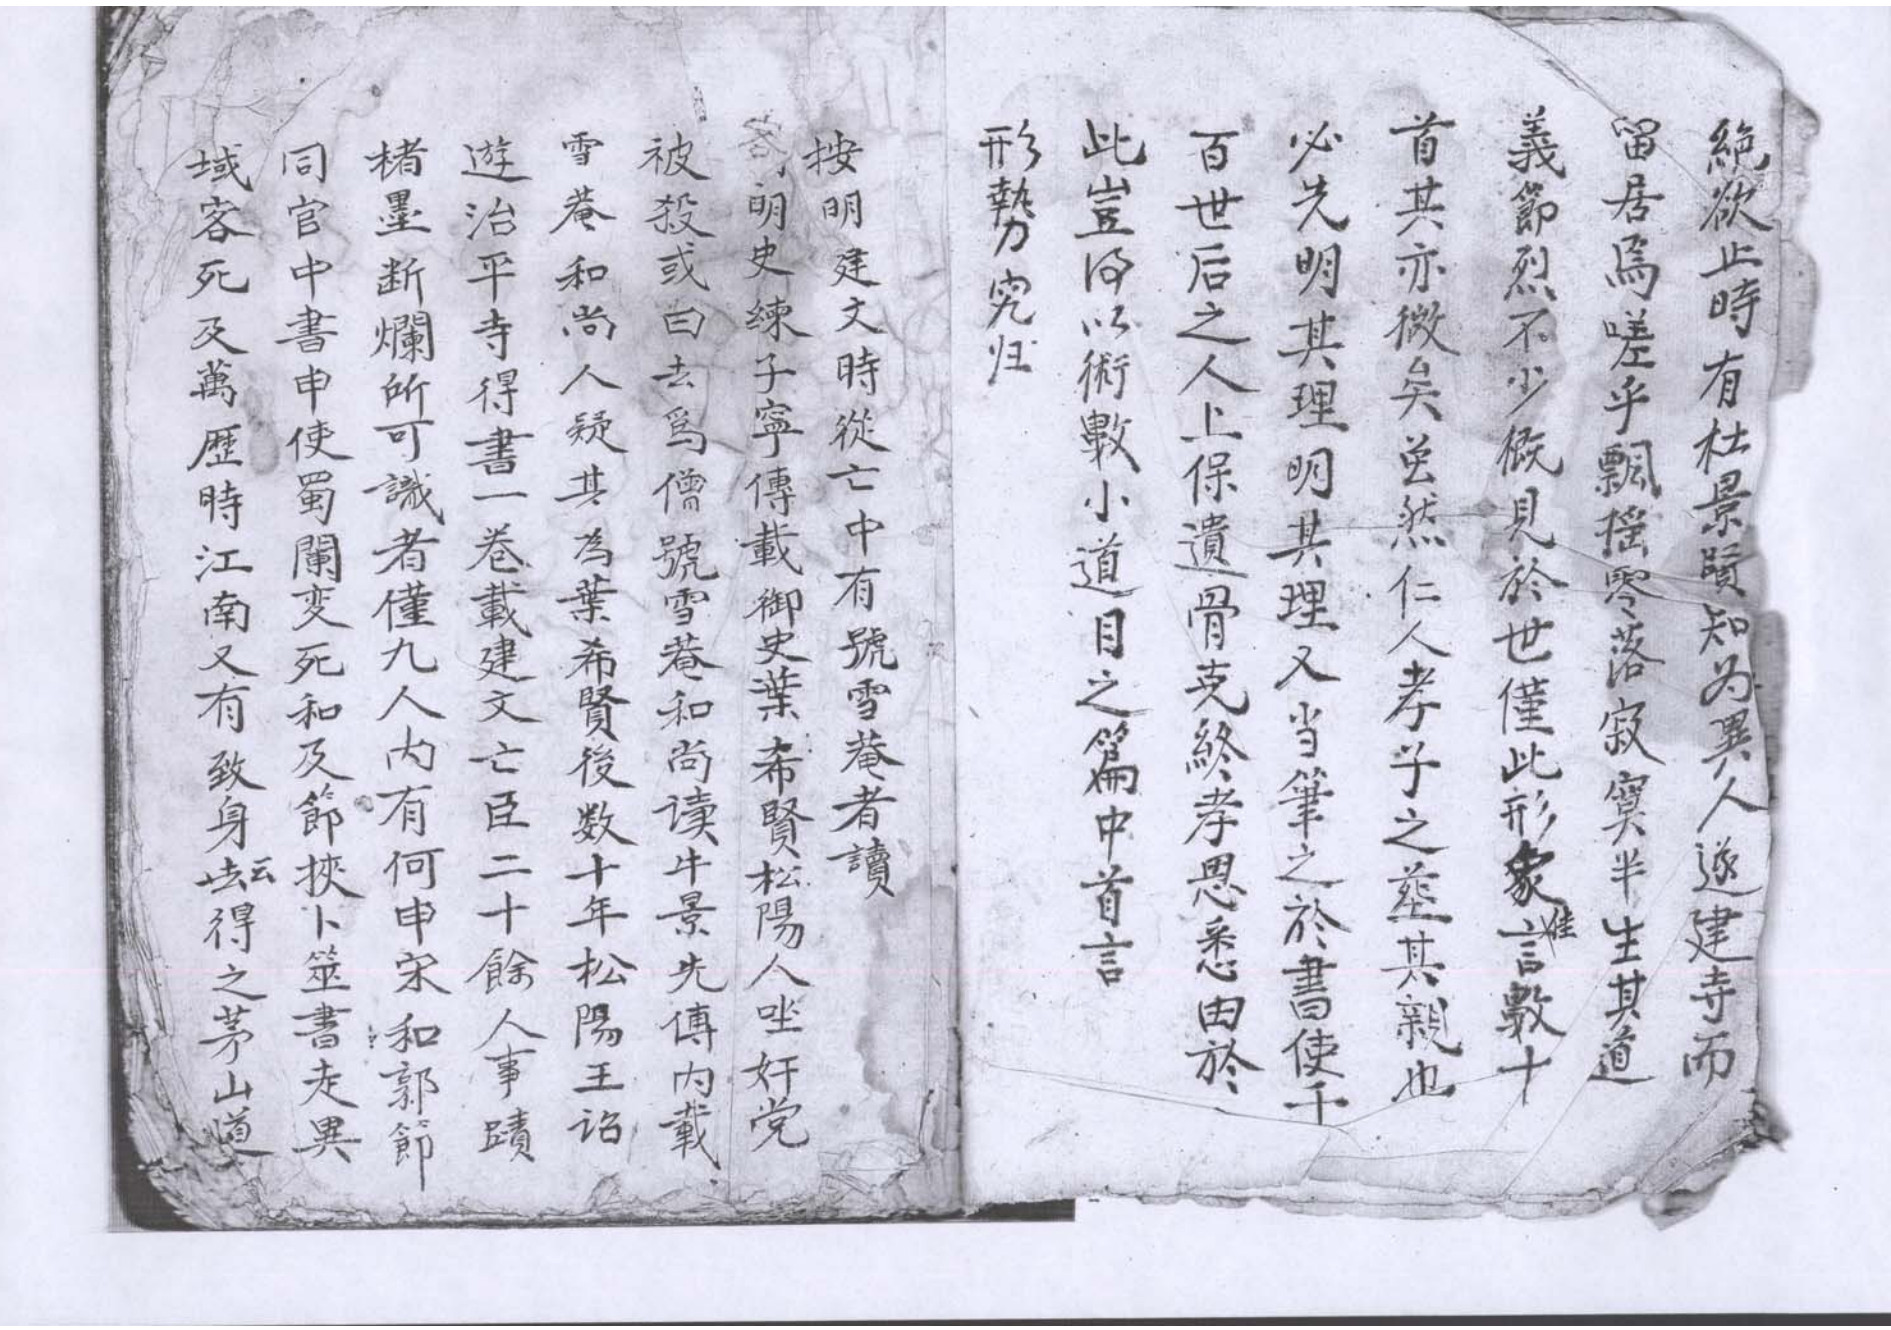 絶欲止時有杜景賢知为異人遂建寺而
留居焉嗟乎飄摇零落寂寞半生其道
義節烈不少概見於世僅此形象言雖數十
首其亦微矣然仁人孝子之塟其親也
必先明其理明其理又当筆之於書使千
百世后之人上保遺骨克終孝思悉由於
此豈得以術數小道目之篇中首言
形勢究归
按明建文時從亡中有號雪菴者讀
明史練子寧傳載御史葉希賢松陽人坐奸党
被殺或曰去爲僧號雪菴和尚读牛景先傳内載
雪菴和尚人疑其为葉希賢後数十年松陽王詔
遊治平寺得書一卷載建文亡臣二十餘人事蹟
楮墨断爛所可識者僅九人内有何申宋和郭節
同官中書申使蜀闻変死和及節挾卜筮書走異
域客死及萬歴時江南又有致身云得之茅山道